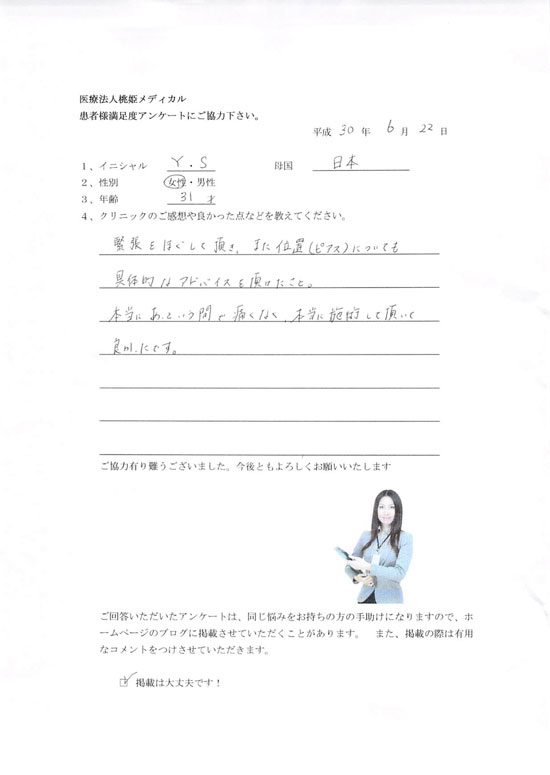 医療法人桃姫メディカル
患者様満足度アンケートにご協力下さい。
平成 30 年 6 月 22 日
1、イニシャル Y.S 母国 日本
2、性別 女性・男性
3、年齢 31 才
4、クリニックのご感想や良かった点などを教えてください。
緊張をほぐして頂き、また位置(ピアス)についても
具体的なアドバイスを頂けたこと。
本当にあっという間で痛くなく、本当に施術して頂いて
良かったです。
ご協力有り難うございました。今後ともよろしくお願いいたします
ご回答いただいたアンケートは、同じ悩みをお持ちの方の手助けになりますので、ホ
ームページのブログに掲載させていただくことがあります。 また、掲載の際は有用
なコメントをつけさせていただきます。
☑ 掲載は大丈夫です！